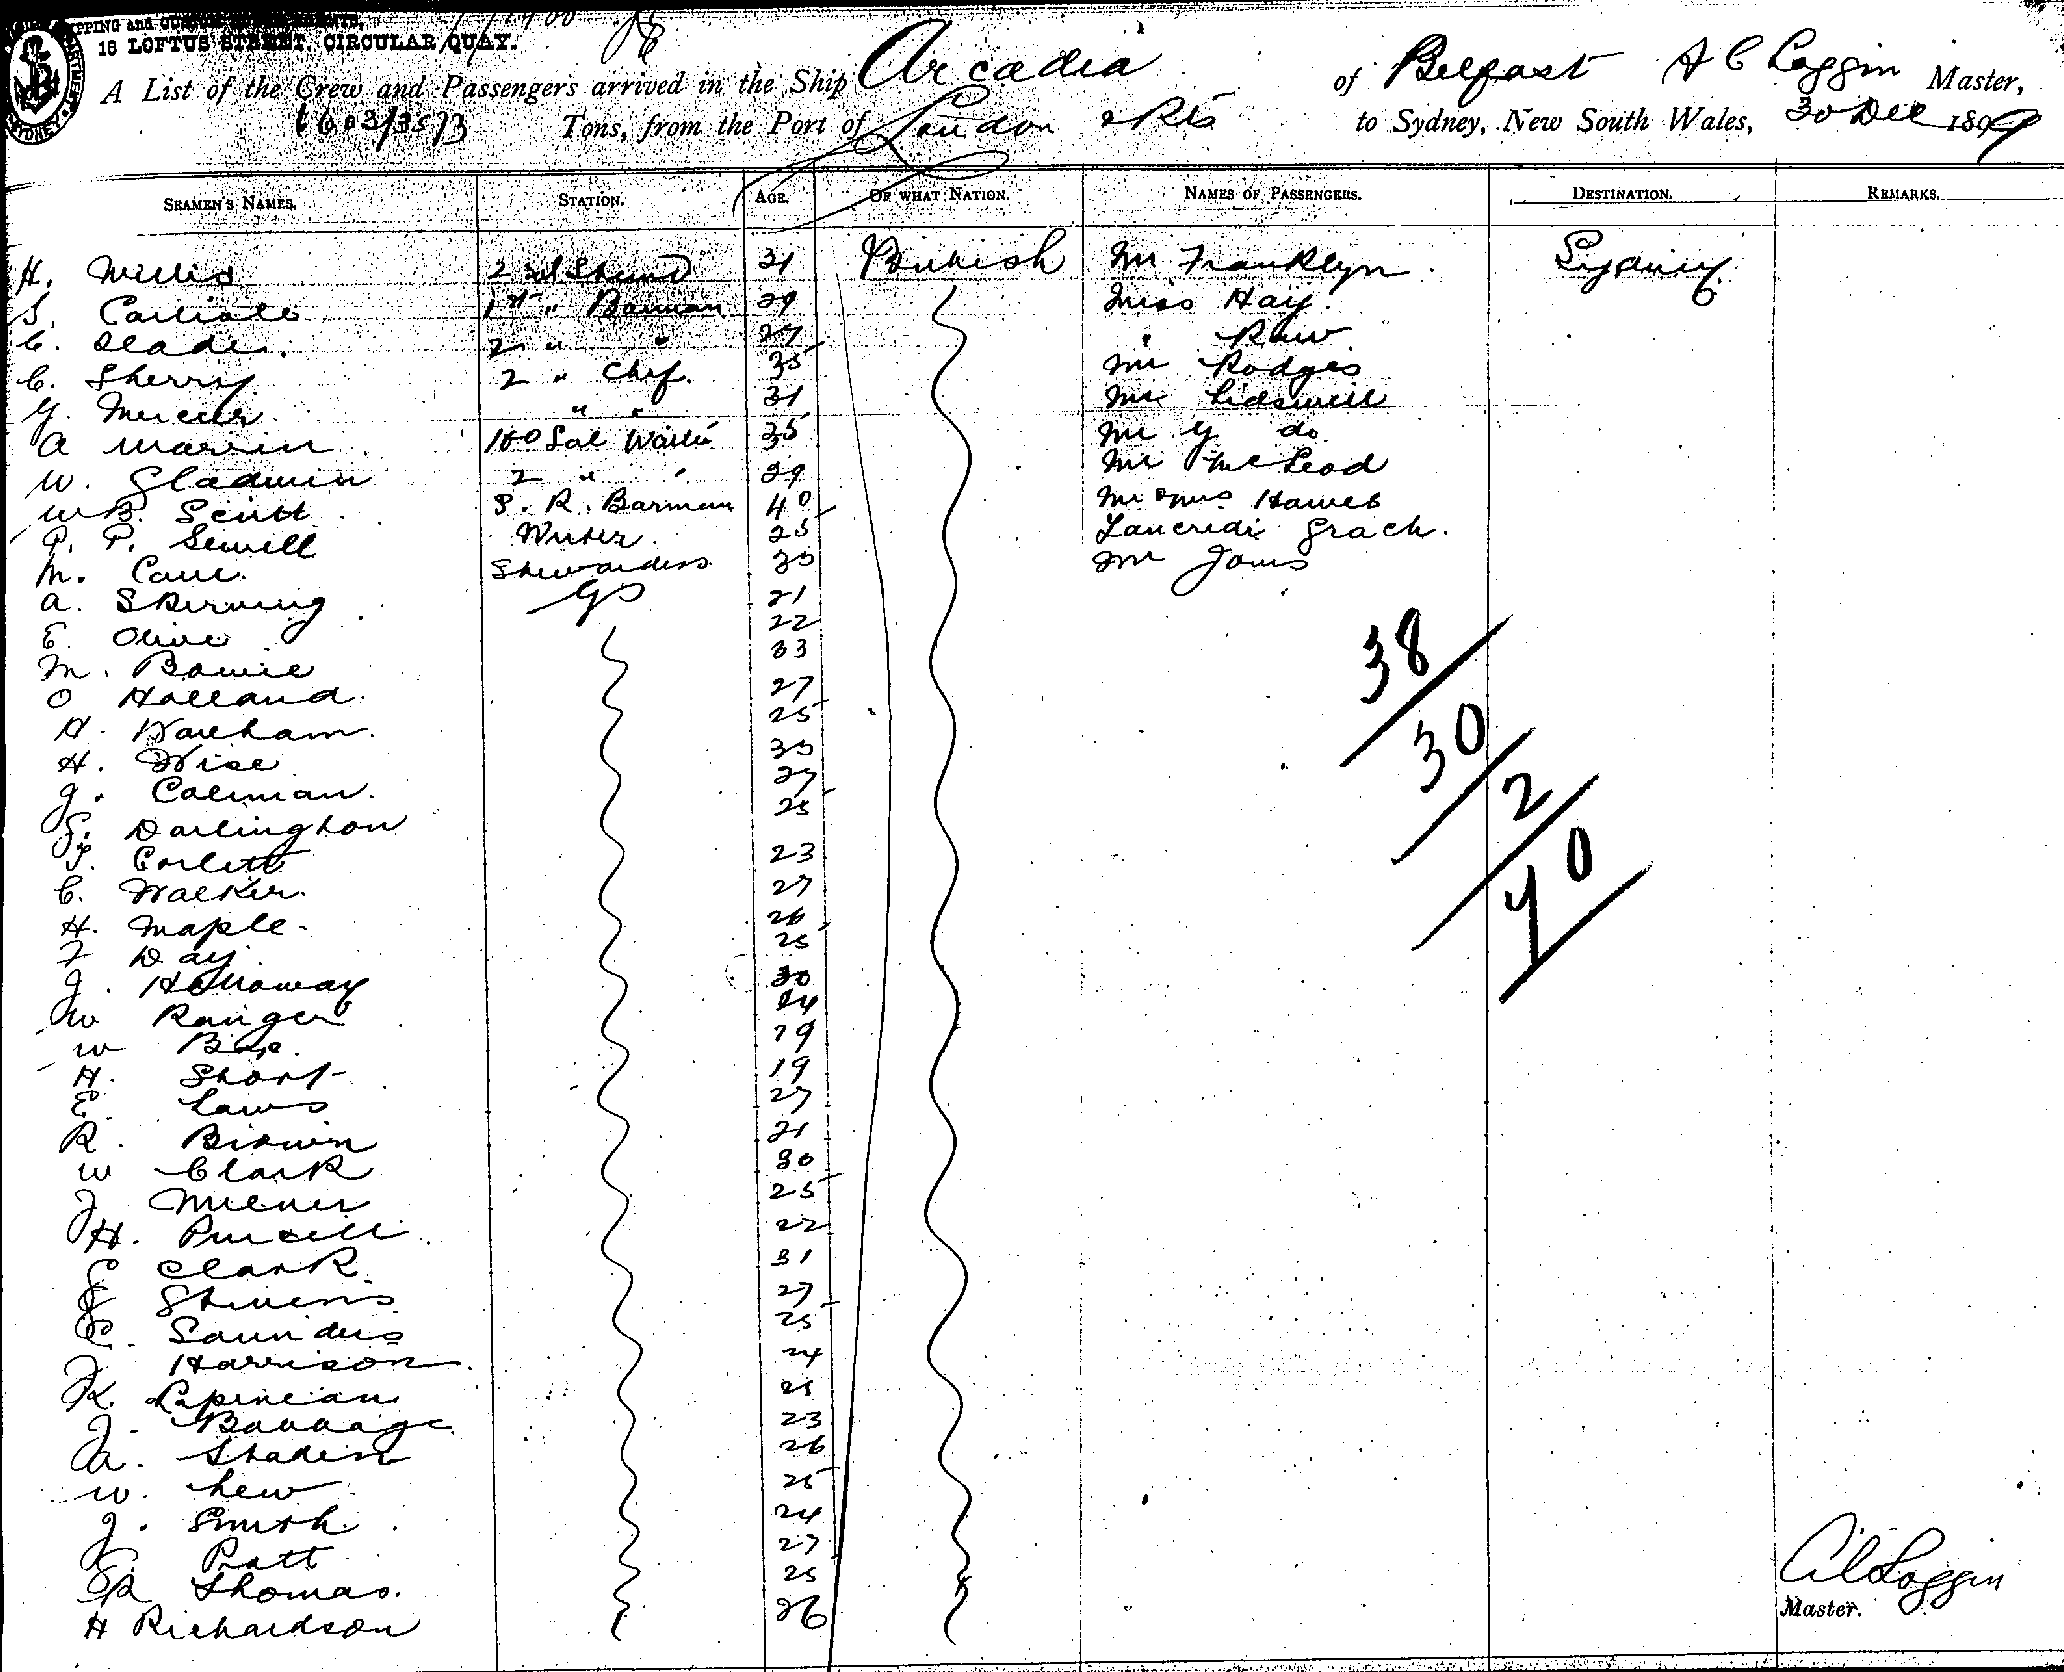 SHIPPING and
18 LOFTUS STREET, CIRCULAR QUAY.
A List of the Crew and Passengers arrived in the Ship Arcadia of Belfast A C Loggin Master,
6603/3573 Tons, from the Port of London & Pts to Sydney, New South Wales, 30 Dec 1899
SEAMEN'S NAMES. STATION. AGE. OF WHAT NATION. NAMES OF PASSENGERS. DESTINATION. REMARKS.
H. Willis 2nd 31 British Mr Franklyn Sydney
S. Carlisle 1st " Barman 29 Miss Hay
C. Slade 2 " " 27 "
C. Sherry 2 " Chef. 35 Mr Rodges
G. Mercer " " 31 Mr
A Warren Sal Waiter 35 Mr G do
W. Gladwin 2 " " 29 Mr McLeod
W B. Scutt S. R. Barman 40 Mr & Mrs Hawes
P. P. Sewell Writer 25 Tancredi Grach.
M. Cane Stewardess 35 Mr Jones
A. Skirving GS 21
E. Olive 22
M. Bowie 33
O Holland 27
A. Wareham 25
H. Wise 35
J. Coleman 27
S. Darlington 25
T. Corlett 23
C. Walker 27
H. Maple 26
F Day 25
J. Holloway 30
W Ranger 24
W 19
H. Short 19
E. Laws 27
R. 21
W Clark 30
J Milner 25
H. Purcell 22
E Clark 31
Stevens 27
C. Saunders 25
J Harrison 24
K. 21
J. 23
A. 26
W. Lew 25
J. Smith 24
Pratt 27
R Thomas 25
H Richardson 26
38
30
2
70
A C Loggin
Master.